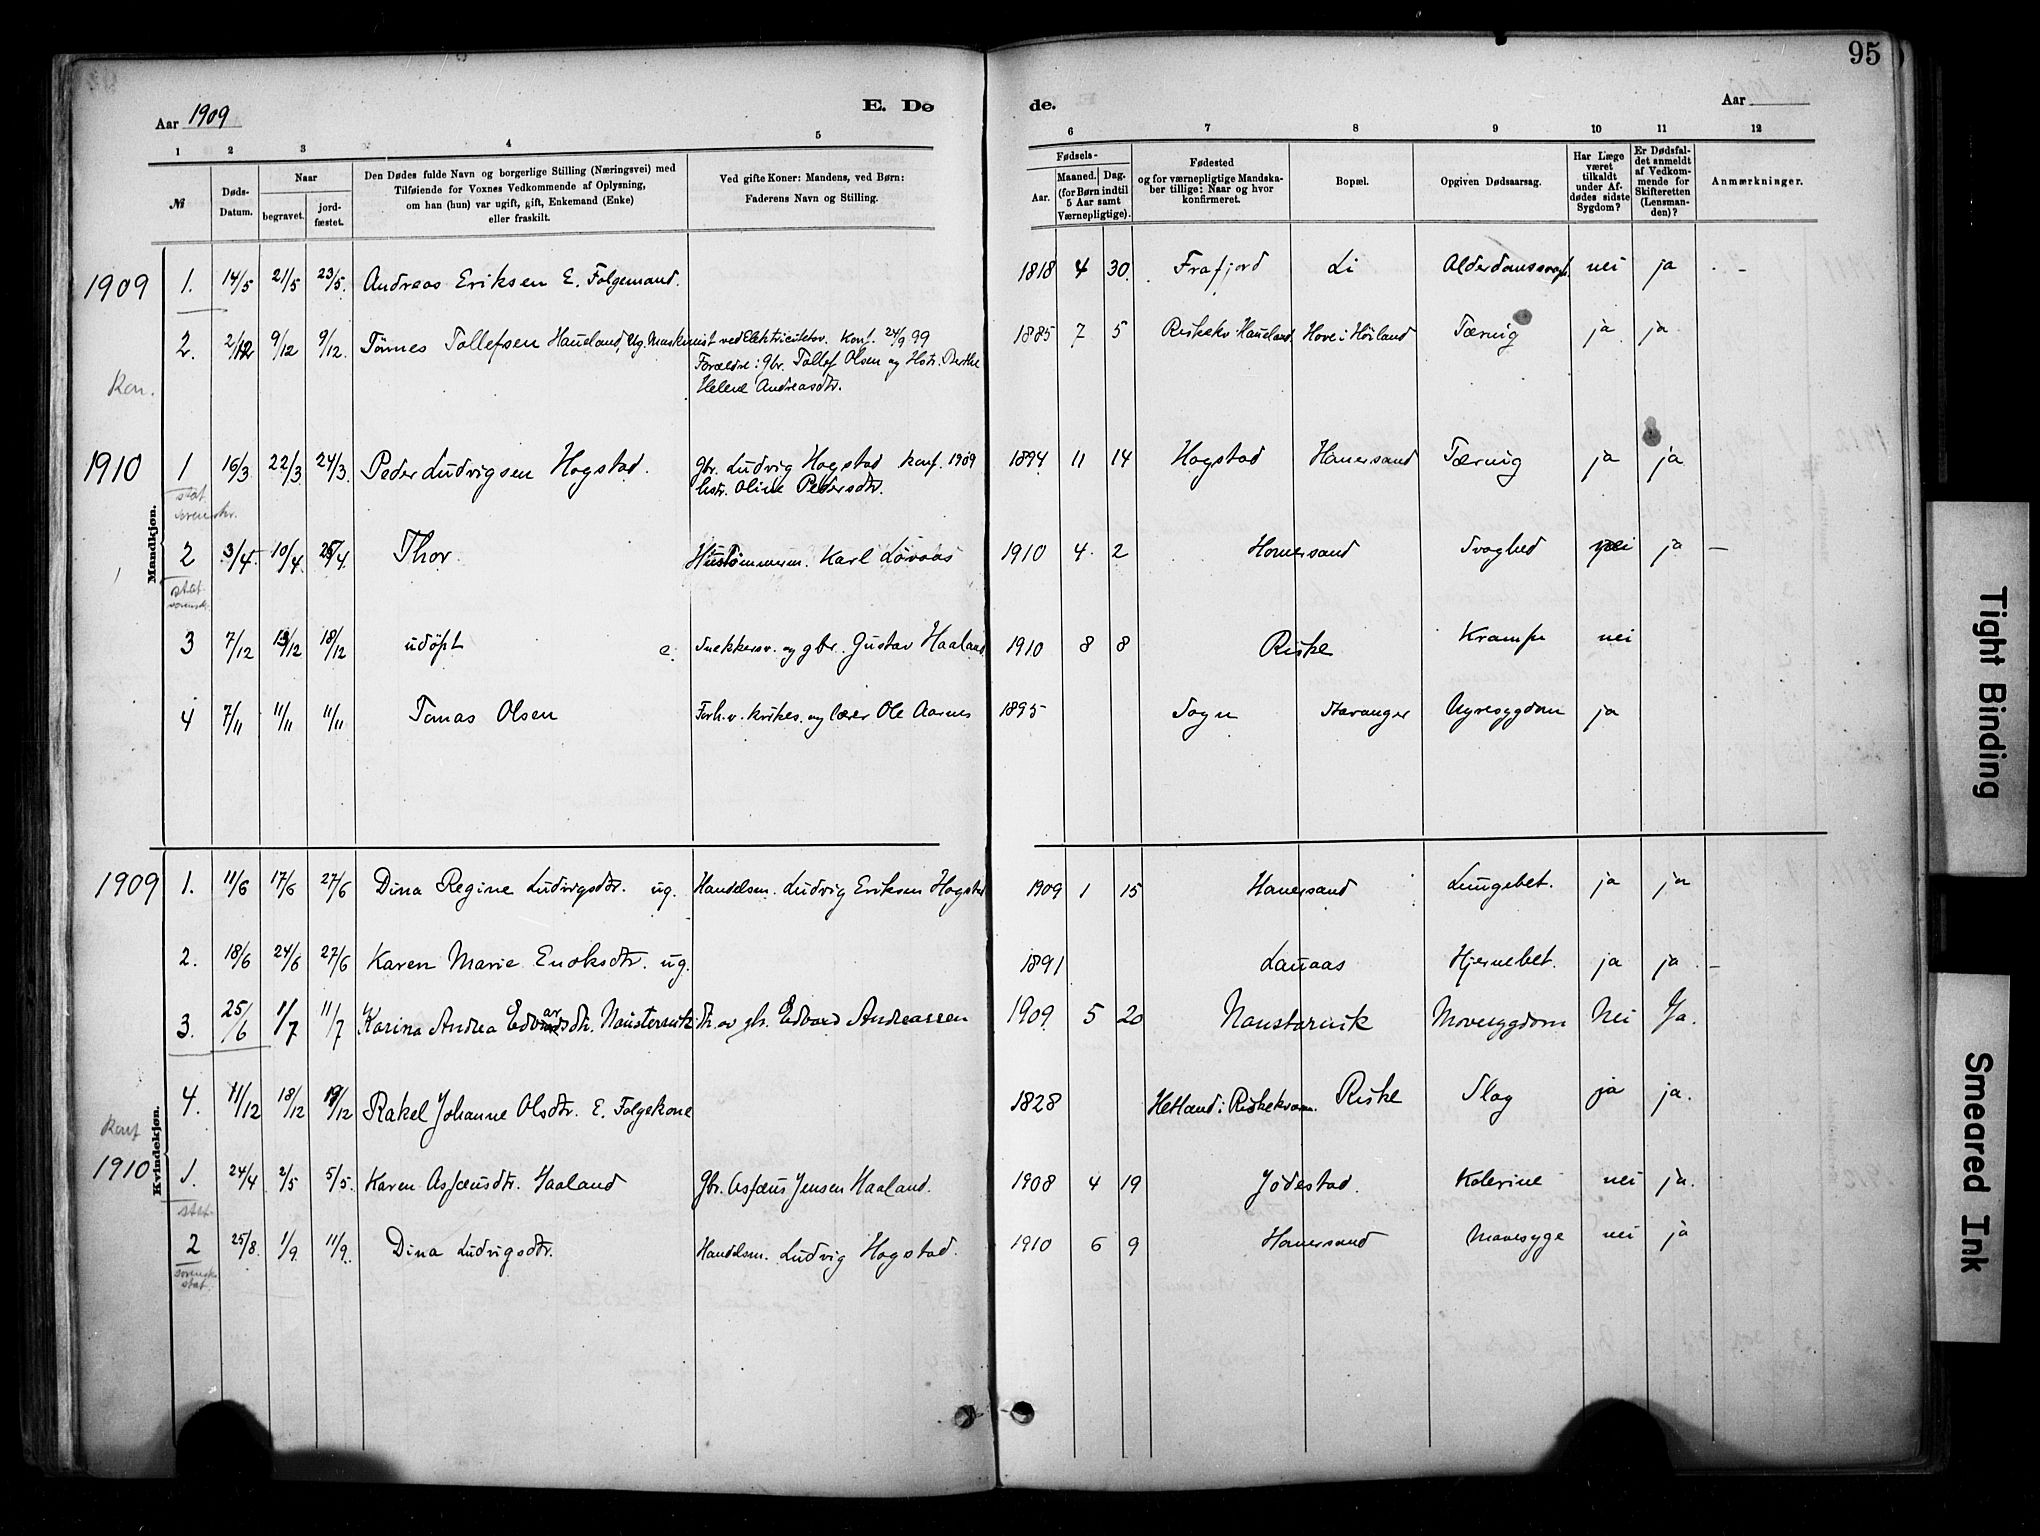 95
Aar 1909
E. Dø
de.
Aar
1 2 3 4 5 6 7 8 9 10 11 12
№
Døds-Datum.
Naar
begravet.
jord-fæstet.
Den Dødes fulde Navn og borgerlige Stilling (Næringsvei) med
Tilføiende for Voxnes Vedkommende af Oplysning,
om han (hun) var ugift, gift, Enkemand (Enke)
eller fraskilt.
Ved gifte Koner: Mandens, ved Børn:
Faderens Navn og Stilling.
Fødsels-
Aar.
Maaned. Dag.
(for Børn indtil
5 Aar samt
Værnepligtige).
Fødested
og for værnepligtige Mandska-
ber tillige: Naar og hvor
konfirmeret.
Bopæl.
Opgiven Dødsaarsag.
Har Læge
været
tilkaldt
under Af-
dødes sidste
Sygdom?
Er Dødsfal-
det anmeldt
af Vedkom-
mende for
Skifteretten
(Lensman-
den)?
Anmærkninger.
1909 1. 14/5 21/5 23/5. Andreas Eriksen E. Folgemand. 1818 4 30 Frafjord Li nei ja
2. 2/12 9/12 9/12. Tønnes Tollefsen Haueland, ug. Maskinist ved Elektricitetsv. Konf. 24/9 99 1885 7 5 Riskekv Haueland Hove i Høiland Tæring ja ja
Forældre: gbr. Tollef Olsen og Hstr. Berthe
Helene Andreasdtr.
1910 1 16/3 22/3 24/3. Peder Ludvigsen Hogstad. gbr. Ludvig Hogstad Konf. 1909 1894 11 14 Hogstad Hanersand Tæring ja ja
hstr. Oline Pedersdtr.
stat
Mandkjøn.
2 3/4 10/4 25/4. Thor Karl Løvaas 1910 4 2 Svaghed nei ja
stat
3 7/12 13/12 18/12 udöpt e. Snekkersv. og gbr. Gustav Haaland 1910 8 8 Riske Krampe nei
4 7/11 11/11 11/11 Tomas Olsen Forh. v. og lærer Ole Aarnes 1895 Sogn Stavanger Nyresygdom ja
1909 1. 11/6 17/6 27/6 Dina Regine Ludvigsdtr. ug. Handelsm. Ludvig Eriksen Hogstad 1909 1 15 Hanersand Lungebet. ja ja
2. 18/6 24/6 27/6 Karen Marie Enoksdtr. ug. 1891 Lauaas Hjernebet. ja ja
3. 25/6 1/7 11/7 Karina Andrea Edvardsdtr. dtr. av gbr. Edvard Andreassen 1909 5 20 Mavesygdom Nei Ja.
4. 11/12 18/12 19/12 Rakel Johanne Olsdtr. E. Folgekone 1828 Hetland i Riskekvam. Riske Slag ja ja.
Konf
Kvindekjøn.
1910 1. 24/4 2/5 5/5. Karen Asfæusdtr. Haaland Gbr. Asfæus Jensen Haaland. 1908 4 19 Jödestad. Kolerine nei ja.
stat
2 25/8. 1/9 11/9. Dina Ludvigsdtr. Handelsm. Ludvig Hogstad. 1910 6 9 Hanersand Mavesyge nei ja
stat.
Tight Binding
Smeared Ink